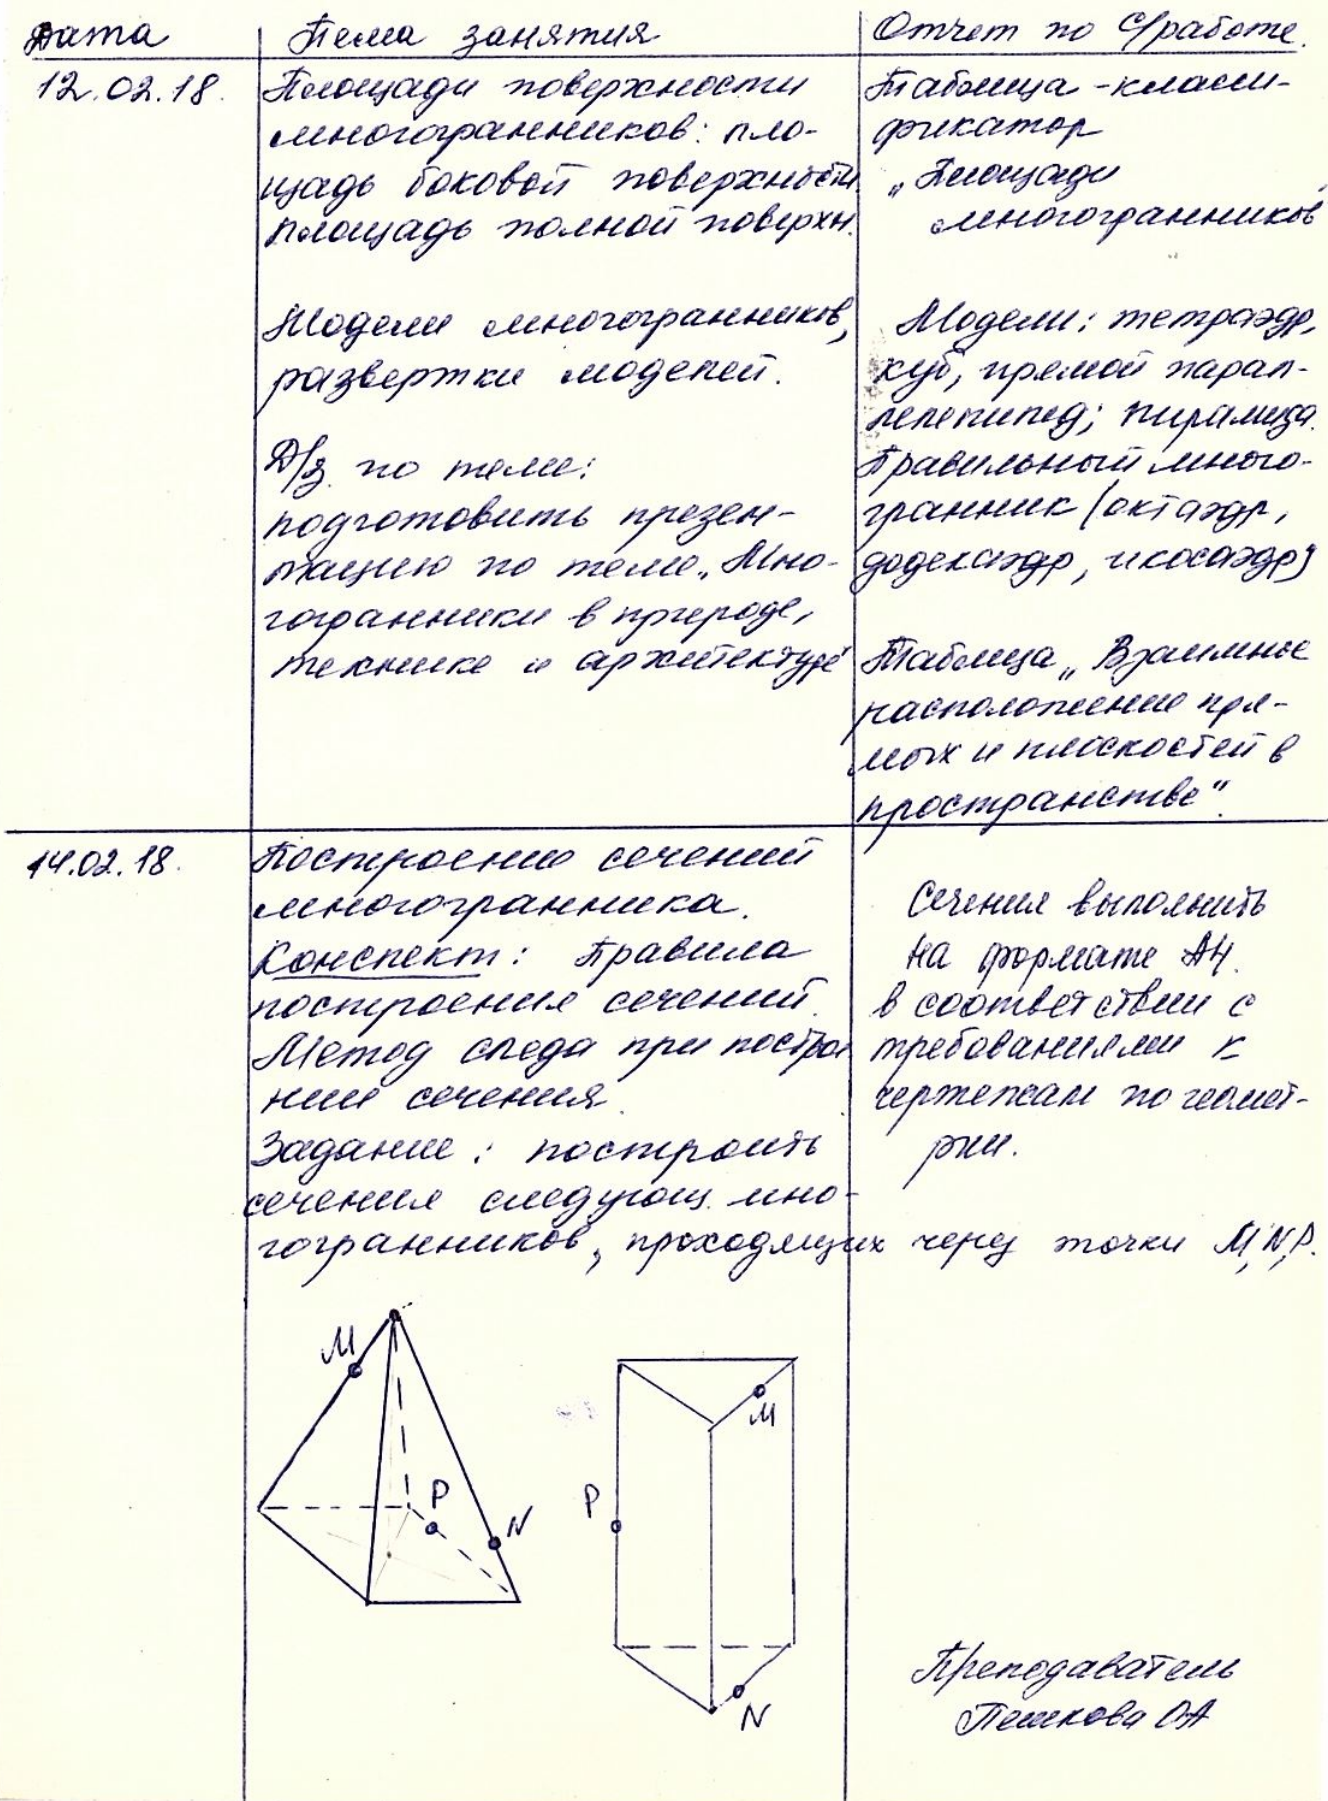 Дата Тема занятия Отчет по с/работе.
12.02.18.
Площади поверхности
многогранников: пло-
щадь боковой поверхности.
площадь полной поверхн.
Модели многогранников,
развертки моделей.
Д/з по теме:
подготовить презен-
тацию по теме „Мно-
гогранники в природе,
технике и архитектуре"
Таблица-класси-
фикатор
„Площади
многогранников"
Модели: тетраэдр,
куб, прямой парал-
лелепипед; пирамида.
Правильный много-
гранник (октаэдр,
додекаэдр, икосаэдр)
Таблица „Взаимное
расположение пря-
мых и плоскостей в
пространстве".
14.02.18.
Построение сечений
многогранника.
Конспект: Правила
построения сечений.
Метод следа при построе
нии сечения.
Задание: построить
сечения следующ. мно-
гогранников, проходящих через точки M, N, P.
Сечения выполнить
на формате А4.
в соответствии с
требованиями к
чертежам по геомет-
рии.
M
P
N
P
M
N
Преподаватель
Пешкова ОА